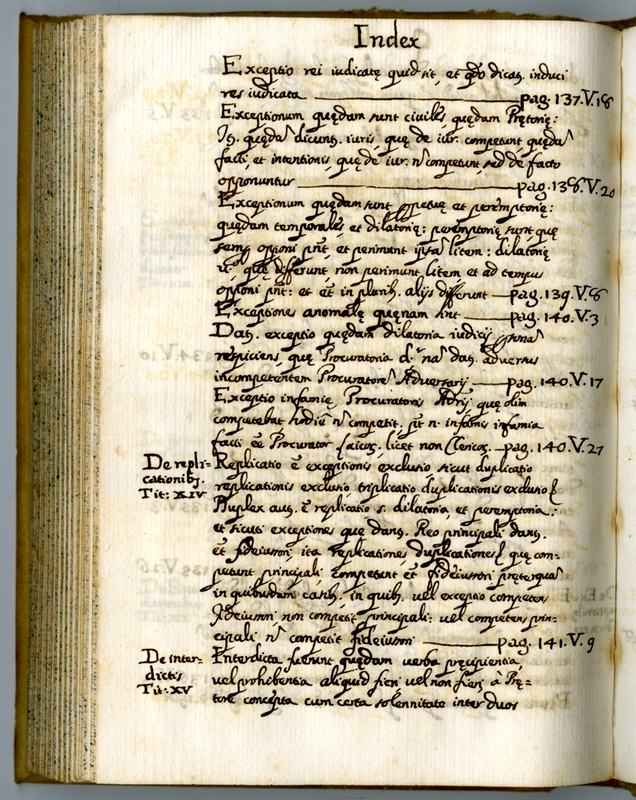 Index
Exceptio rei iudicatę quid sit, et qdo dicat. induci
res iudicata pag. 137.V.18
Exceptionum quędam sunt ciuiles, quędam Prętorię:
quędã dicunt. iuris, quę de iur. competunt, quędã
facti, et intentionis, quę de iur. ñ competunt, sed de facto
opponuntur pag. 138.V.20
Exceptionum quędam sunt ppetuę et peremptorię:
quędam temporales, et dilatorię: peremptorię sunt quę
semp. opponi pñt, et perimunt ipsã litem: dilatorię
quę differunt, non perimunt litem et ad tempus
opponi pñt: et ẽt in plurib. alijs differunt pag. 139.V.8
Exceptiones anomalę quęnam sint pag. 140.V.3
Dat. exceptio quędam dilatoria iudicij
respiciens, quę Procuratoria dr nã dat. aduersus
incompetentem Procuratorẽ Aduersarij pag. 140.V.17
Exceptio infamię, Procuratoris Adrij, quę olim
competebat, hodiẽ ñ competit, pt n. infamis infamia
facti ẽe Procurator Laicos, licet non Clericos. pag. 140.V.27
De repli-
cationibj.
Tit: XIV
Replicatio ẽ exceptionis exclusio sicut duplicatio
replicationis exclusio, triplicatio duplicationis exclusio
Duplex aut. ẽ replicatio s. dilatoria, et peremptoria:
et sicuti exceptiones quę dant. Reo principali dant.
ẽt fideiussori ita replicationes, duplicationes quę com-
petunt principali competunt ẽt fideiussori prętergua
in quibusdam casib. in quib. vel exceptio competens
fideiussori non competit principali: vel competens prin-
cipali ñ competit fideiussori pag. 141.V.9
De inter-
dictis
Tit: XV
Interdicta fuerunt quędam verba pręcipientia,
vel prohibentia aliquid fieri vel non fieri, à Prę-
tore concepta cum certa solennitate inter duos